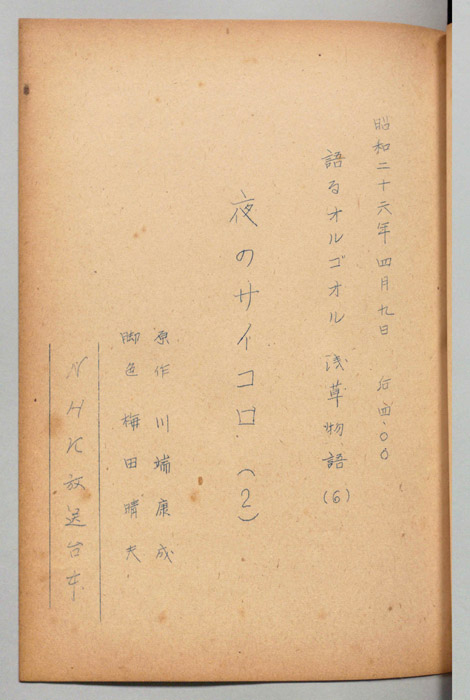 昭和二十六年四月九日 后四.00
語るオルゴオル 浅草物語(6)
夜のサイコロ (2)
原作 川端康成
脚色 梅田晴夫
NHK放送台本